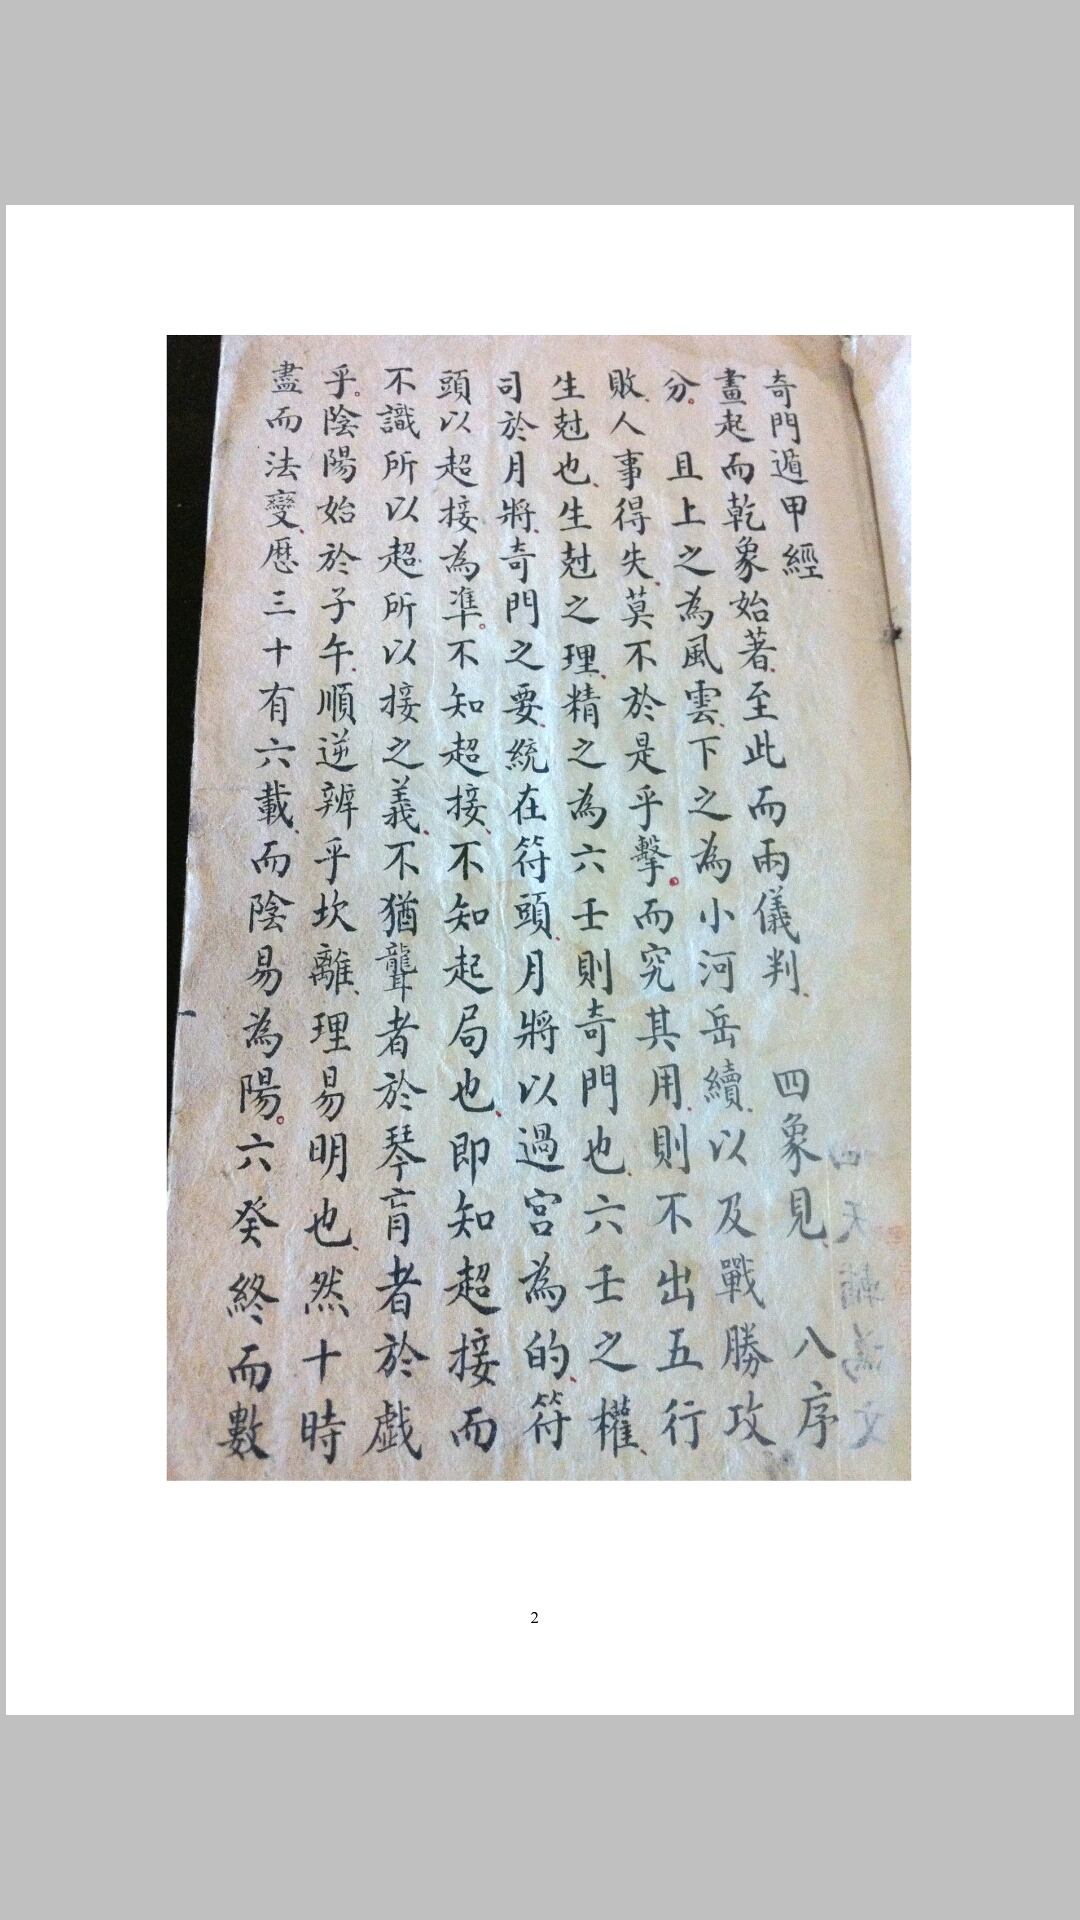 奇門遁甲經
畫起而乾象始著至此而兩儀判 四象見 八序
分 且上之為風雲下之為小河岳續以及戰勝攻
敗人事得失莫不於是乎擊而究其用則不出五行
生尅也生尅之理精之為六壬則奇門也六壬之權
司於月將奇門之要統在符頭月將以過宮為的符
頭以超接為準不知超接不知起局也即知超接而
不識所以超所以接之義不猶聾者於琴肓者於戯
乎陰陽始於子午順逆辨乎坎離理易明也然十時
盡而法變歷三十有六載而陰易為陽六癸終而數
2